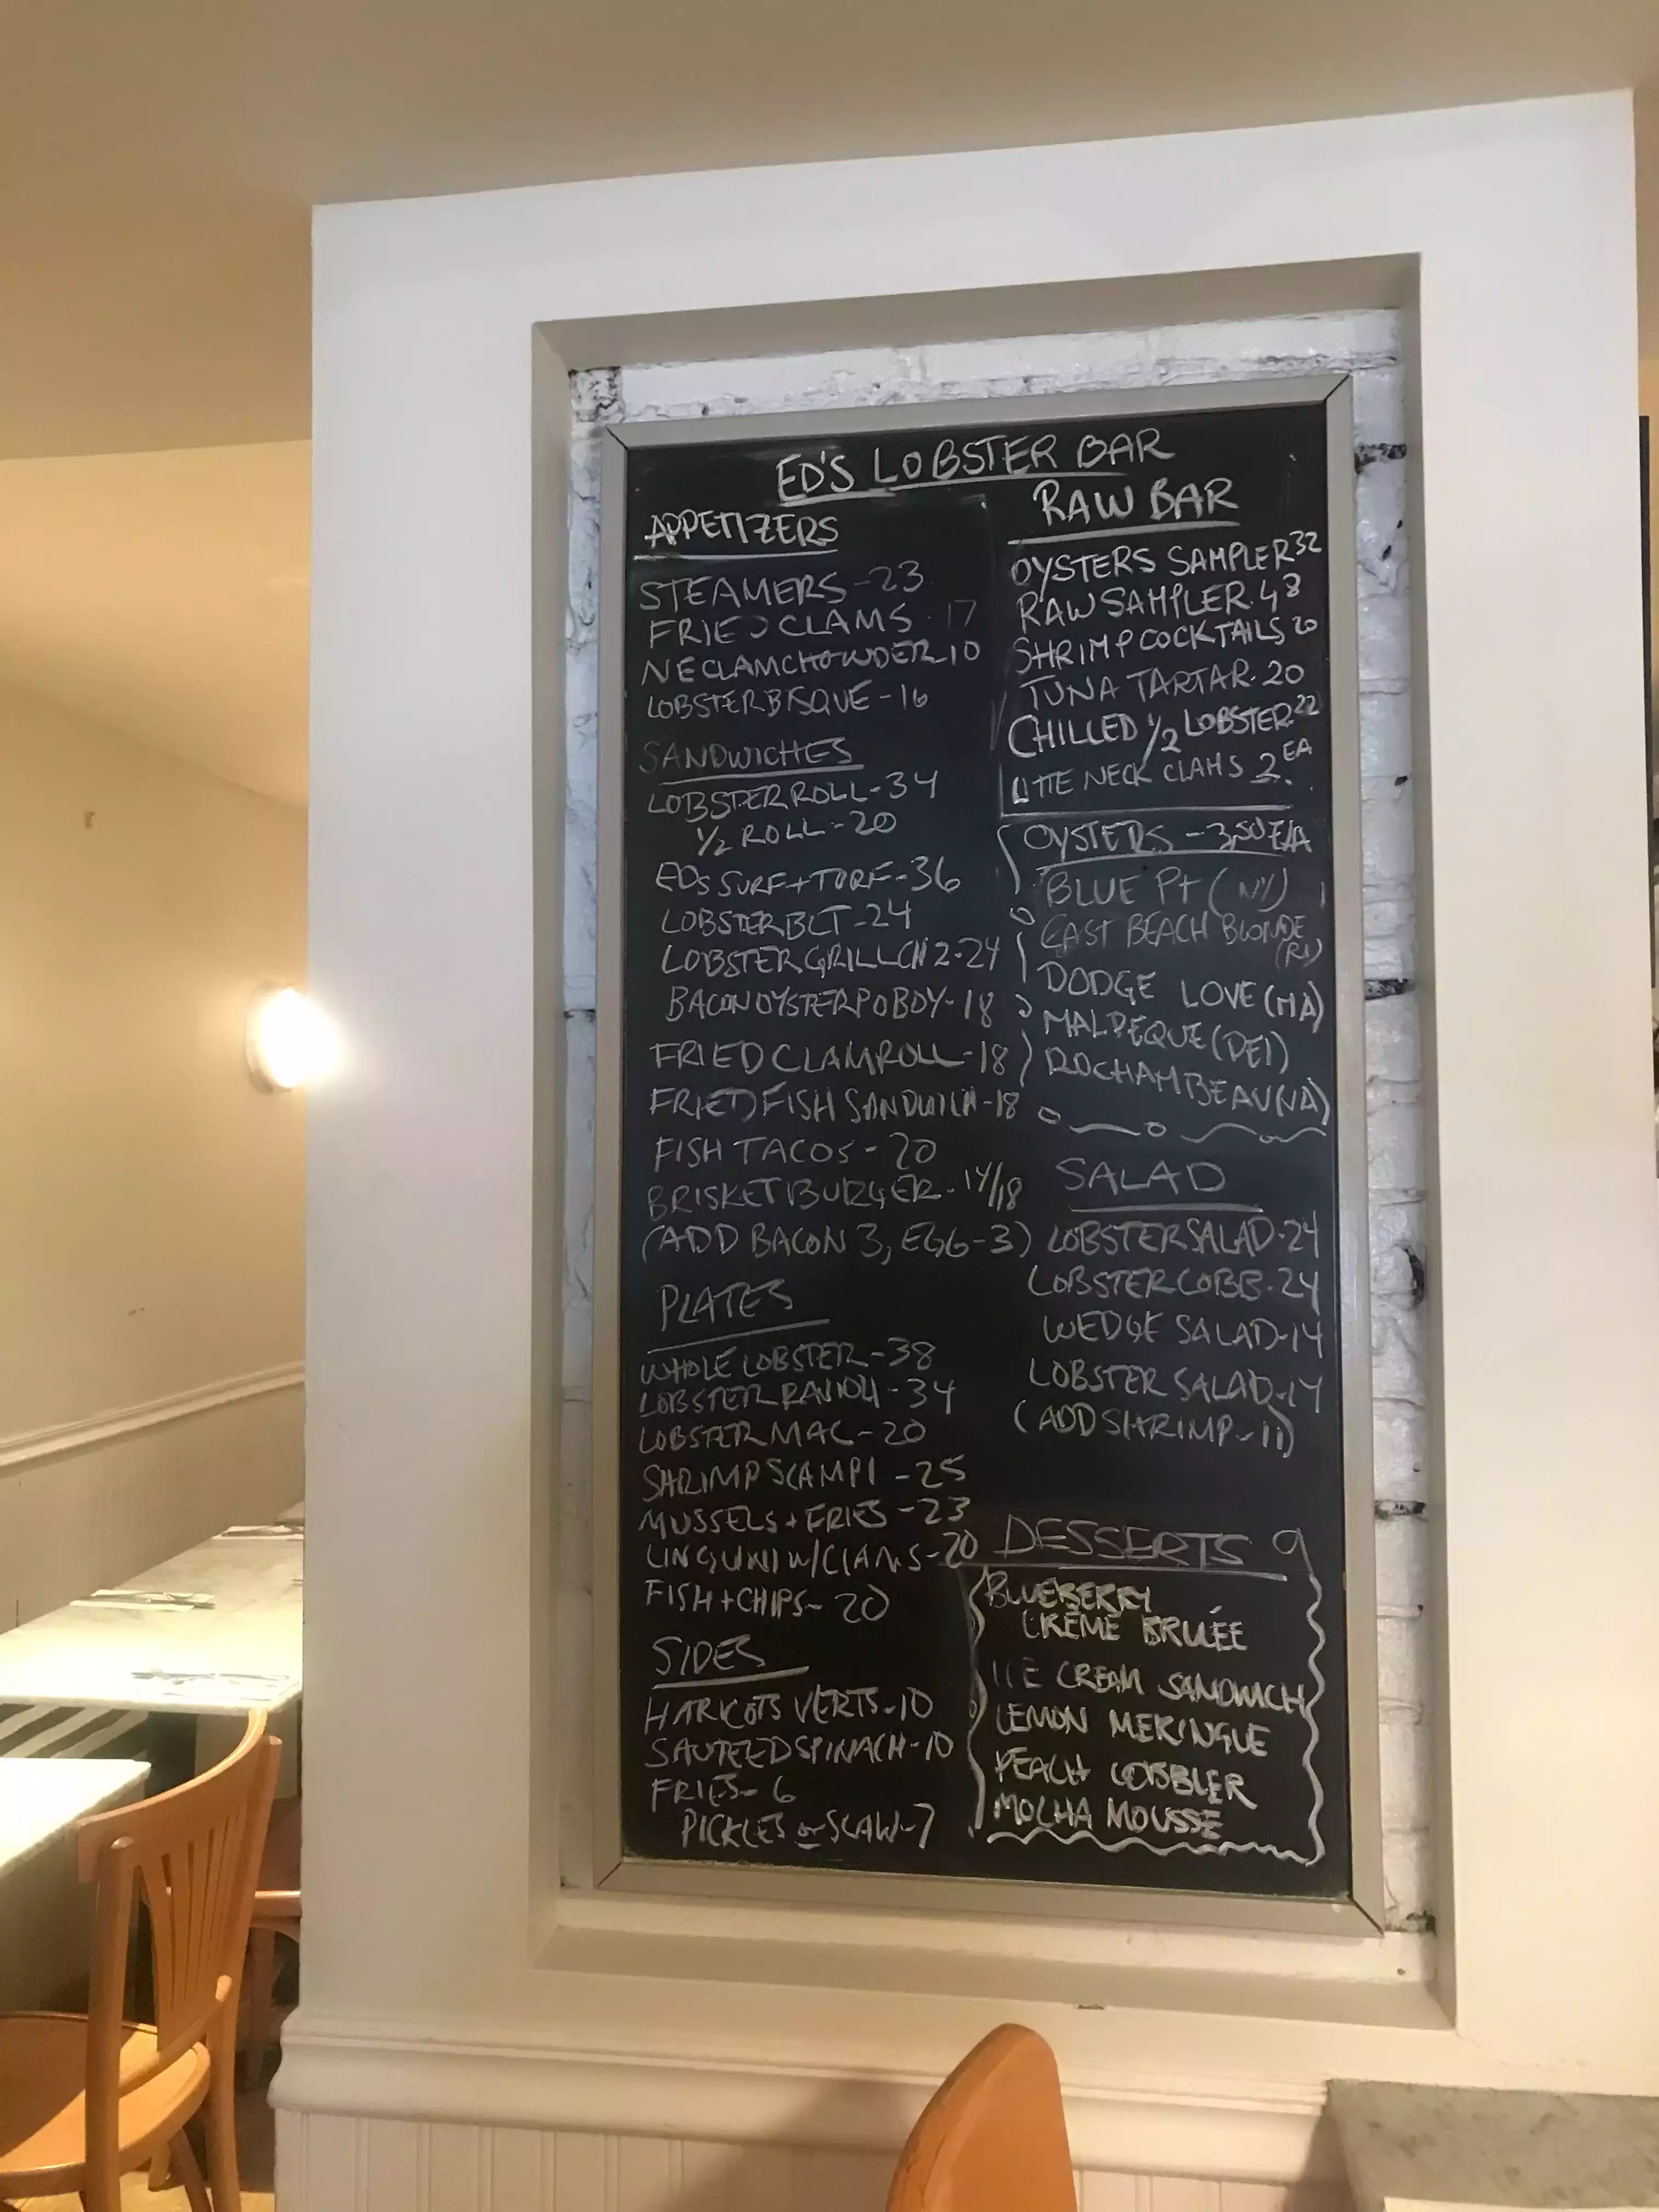 ED'S LOBSTER BAR
APPETIZERS
STEAMERS-23
FRIED CLAMS-17
NE CLAM CHOWDER-10
LOBSTER BISQUE-16
SANDWICHES
LOBSTER ROLL-34
1/2 ROLL-20
EDS SURF+TURF-36
LOBSTER BLT-24
LOBSTER GRILL CHZ-24
BACON OYSTER PO BOY-18
FRIED CLAM ROLL-18
FRIED FISH SANDWICH-18
FISH TACOS-20
BRISKET BURGER-14/18
(ADD BACON 3, EGG-3)
PLATES
WHOLE LOBSTER-38
LOBSTER RAVIOLI-34
LOBSTER MAC-20
SHRIMP SCAMPI-25
MUSSELS+FRIES-23
LINGUINI W/CLAMS-20
FISH+CHIPS-20
SIDES
HARICOTS VERTS-10
SAUTEED SPINACH-10
FRIES-6
PICKLES or SLAW-7
RAW BAR
OYSTERS SAMPLER 32
RAW SAMPLER-48
SHRIMP COCKTAILS 20
TUNA TARTAR-20
CHILLED 1/2 LOBSTER-22
LITTE NECK CLAMS 2. EA
OYSTERS-3.50 E/A
BLUE Pt (NY)
EAST BEACH BLONDE
(RI)
DODGE LOVE (MA)
MALPEQUE (PEI)
ROCHAMBEAU (VA)
SALAD
LOBSTER SALAD-24
LOBSTER COBB-24
WEDGE SALAD-14
LOBSTER SALAD-14
(ADD SHRIMP-11)
DESSERTS 9
BLUEBERRY
CRÈME BRULÉE
ICE CREAM SANDWICH
LEMON MERINGUE
PEACH COBBLER
MOCHA MOUSSE